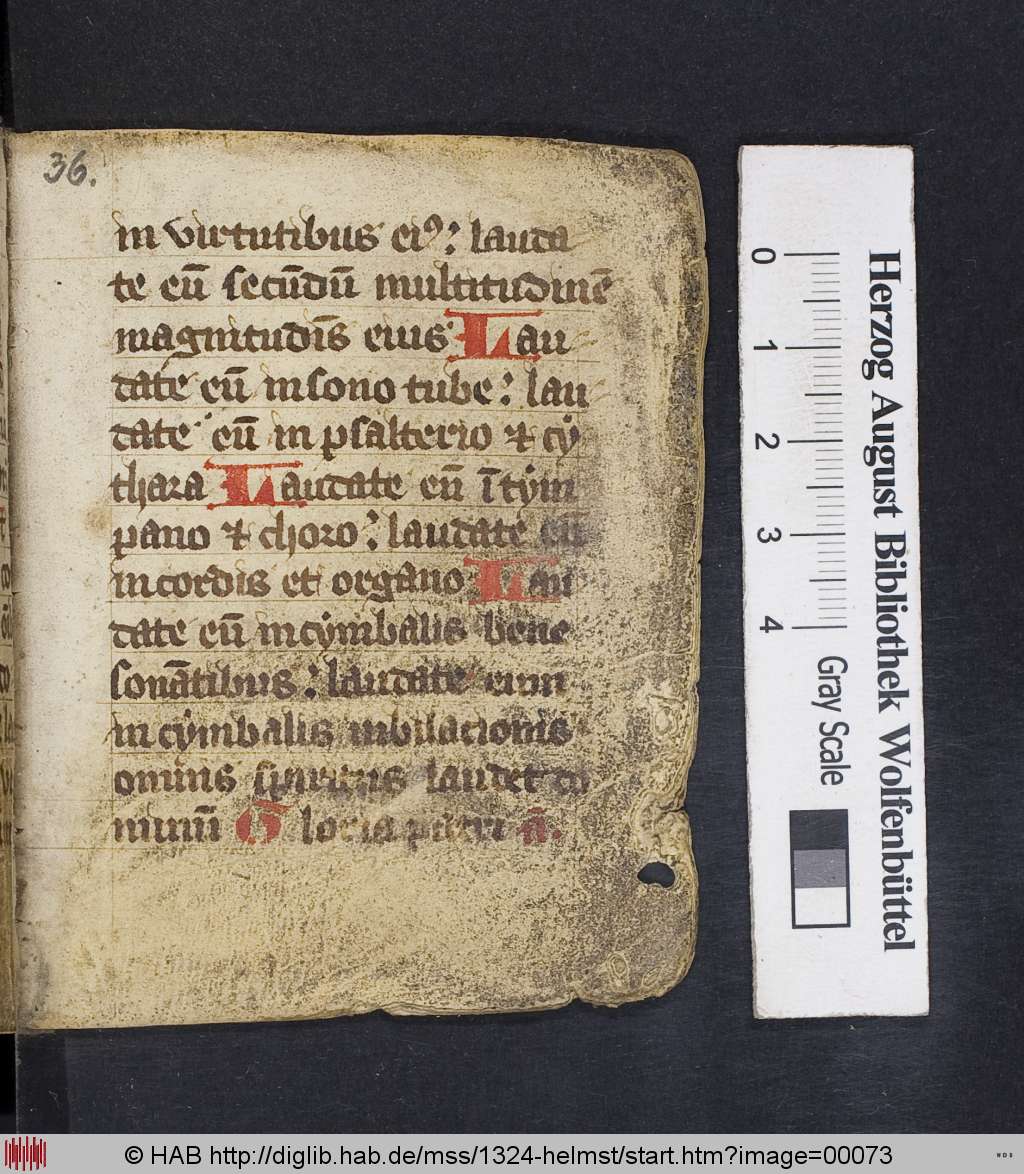 36.
in virtutibus eiꝰ: lauda
te eū secūdū multitudinē
magnitudīs eius Lau
date eū in sono tube: lau
date eū in psalterio ⁊ cẏ
thara Laudate eū ī tẏm
pano ⁊ choro: laudate eū
in cordis et organo Lau
date eū in cẏmbalis bene
sonātibus: laudate eum
in cẏmbalis iubilacionis
omnis spiritus laudet do
minum Gloria patri ā.
0
1
2
3
4
Gray Scale
Herzog August Bibliothek Wolfenbüttel
© HAB http://diglib.hab.de/mss/1324-helmst/start.htm?image=00073